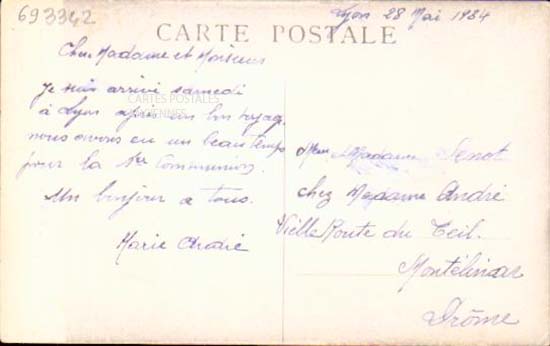 693342
Lyon 28 Mai 1934
CARTE POSTALE
Cher Madame et Monsieur
Je suis arrivé samedi
à Lyon après un bon voyage,
nous avons eu un beau temps
pour la 1ère Communion.
Un bonjour a tous.
Marie
CARTES POSTALES
ANCIENNES
Madame Senot
chez Madame André
Vielle Route du Teil.
Montélimar
Drôme